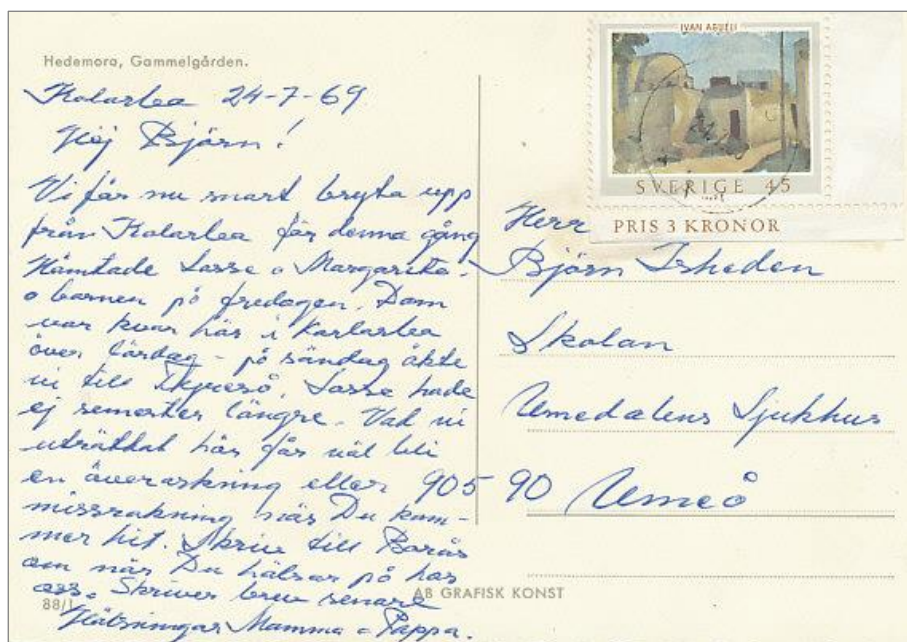 Hedemora, Gammelgården.
Kolarbea 24-7-69
Hej Björn!
Vi får nu snart bryta upp
från Kolarbea för denna gång
Hämtade Lasse o Margarita
o barnen på fredagen. Dom
var kvar här i Karlarbea
över lördag - på söndag åkte
vi till Tyresö, Lasse hade
ej semester längre. Vad vi
uträttat här får väl bli
en överaskning eller
missräkning när Du kom-
mer hit. Skriv till Borås
om när Du hälsar på hos
oss. Skriver brev senare
Hälsningar Mamma o Pappa.
88/1
AB GRAFISK KONST
IVAN AGUÉLI
SVERIGE 45
PRIS 3 KRONOR
Herr
Björn Isheden
Skolan
Umedalens Sjukhus
905 90 Umeå